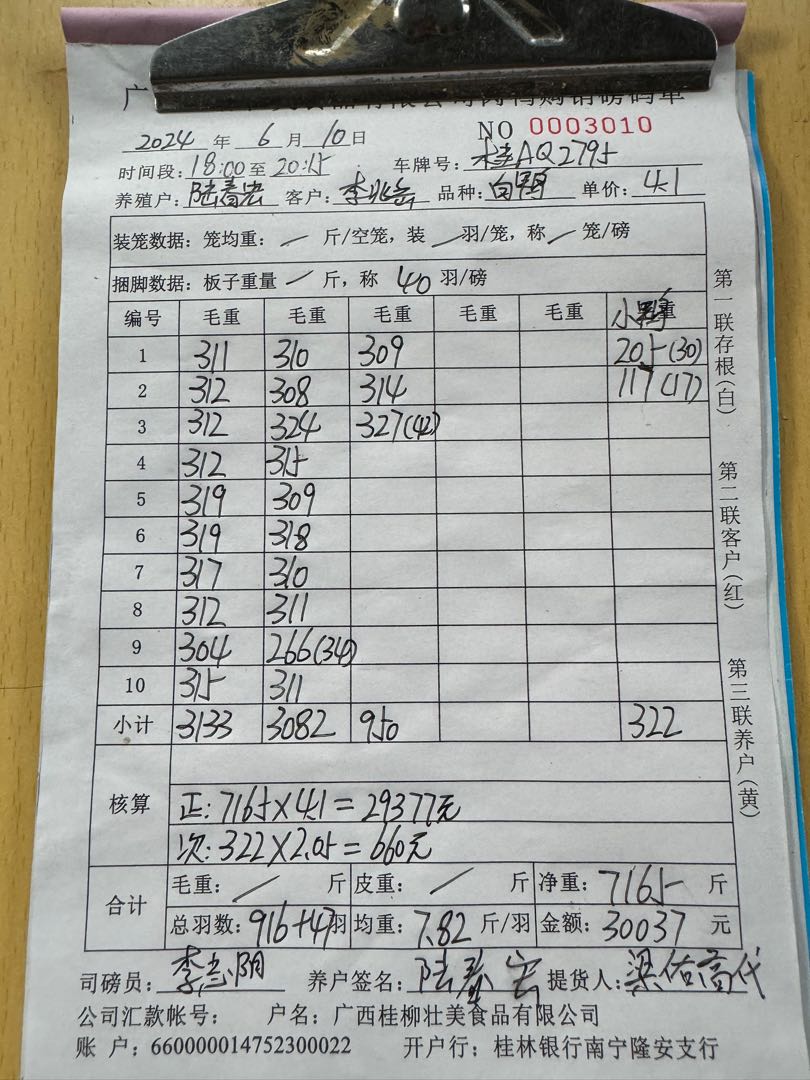 广 食品有限公司肉鸭购销磅码单
2024 年 6 月 10 日 NO 0003010
时间段: 18:00 至 20:15 车牌号: 桂AQ2795
养殖户: 陆春宏 客户: 李兆 品种: 白鸭 单价: 4.1
装笼数据: 笼均重: / 斤/空笼, 装 / 羽/笼, 称 / 笼/磅
捆脚数据: 板子重量 / 斤, 称 40 羽/磅
编号 毛重 毛重 毛重 毛重 毛重 小鸭 重
1 311 310 309 205(30)
2 312 308 314 117(17)
3 312 324 327(42)
4 312 315
5 319 309
6 319 318
7 317 310
8 312 311
9 304 266(34)
10 315 311
小计 3133 3082 950 322
核算
正: 7165×4.1=29377元
次: 322×2.05=660元
合计
毛重: / 斤 皮重: / 斤 净重: 7165 斤
总羽数: 916+47羽 均重: 7.82 斤/羽 金额: 30037 元
司磅员: 李志阴 养户签名: 陆春宏 提货人: 梁佑高代
公司汇款帐号: 户名: 广西桂柳壮美食品有限公司
账 户: 660000014752300022 开户行: 桂林银行南宁隆安支行
第一联存根(白)
第二联客户(红)
第三联养户(黄)